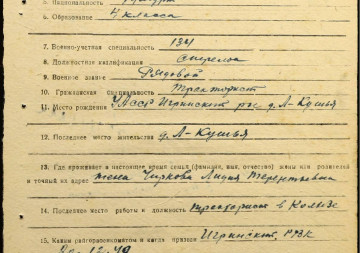 5. Национальность
6. Образование 4 класса
7. Военно-учетная специальность 134
8. Должностная квалификация стрелок
9. Военное звание Рядовой
10. Гражданская специальность тракторист
11. Место рождения УАССР Игринский р-н д. Л-Кушья
12. Последнее место жительства д. Л-Кушья
13. Где проживает в настоящее время семья (фамилия, имя, отчество) жены или родителей
и точный их адрес жена Чиркова Лидия Терентьевна
14. Последнее место работы и должность тракторист в Колхозе
15. Каким райгорвоенкоматом и когда призван Игринский, РВК